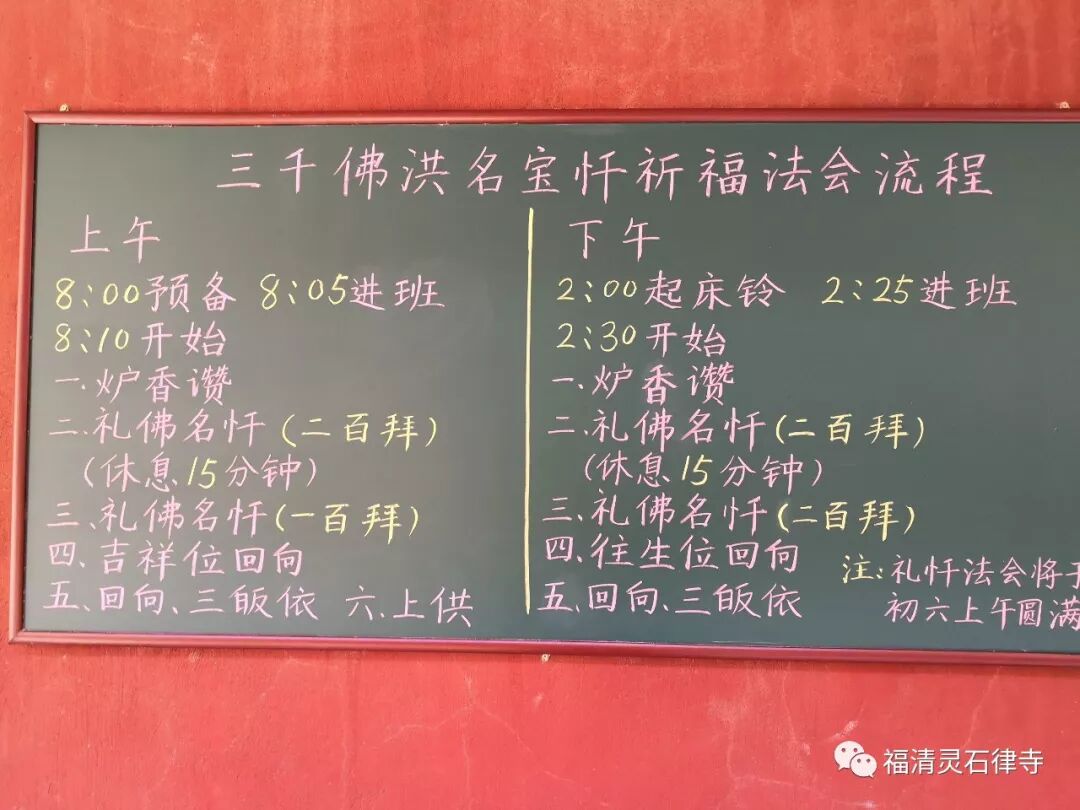 三千佛洪名宝忏祈福法会流程
上午
8:00预备 8:05进班
8:10开始
一.炉香讚
二.礼佛名忏(二百拜)
(休息15分钟)
三、礼佛名忏(一百拜)
四、吉祥位回向
五、回向、三皈依 六、上供
下午
2:00起床铃 2:25进班
2:30开始
一.炉香讚
二.礼佛名忏(二百拜)
(休息15分钟)
三、礼佛名忏(二百拜)
四、往生位回向
五、回向、三皈依
注:礼忏法会将于
初六上午圆满
福清灵石律寺